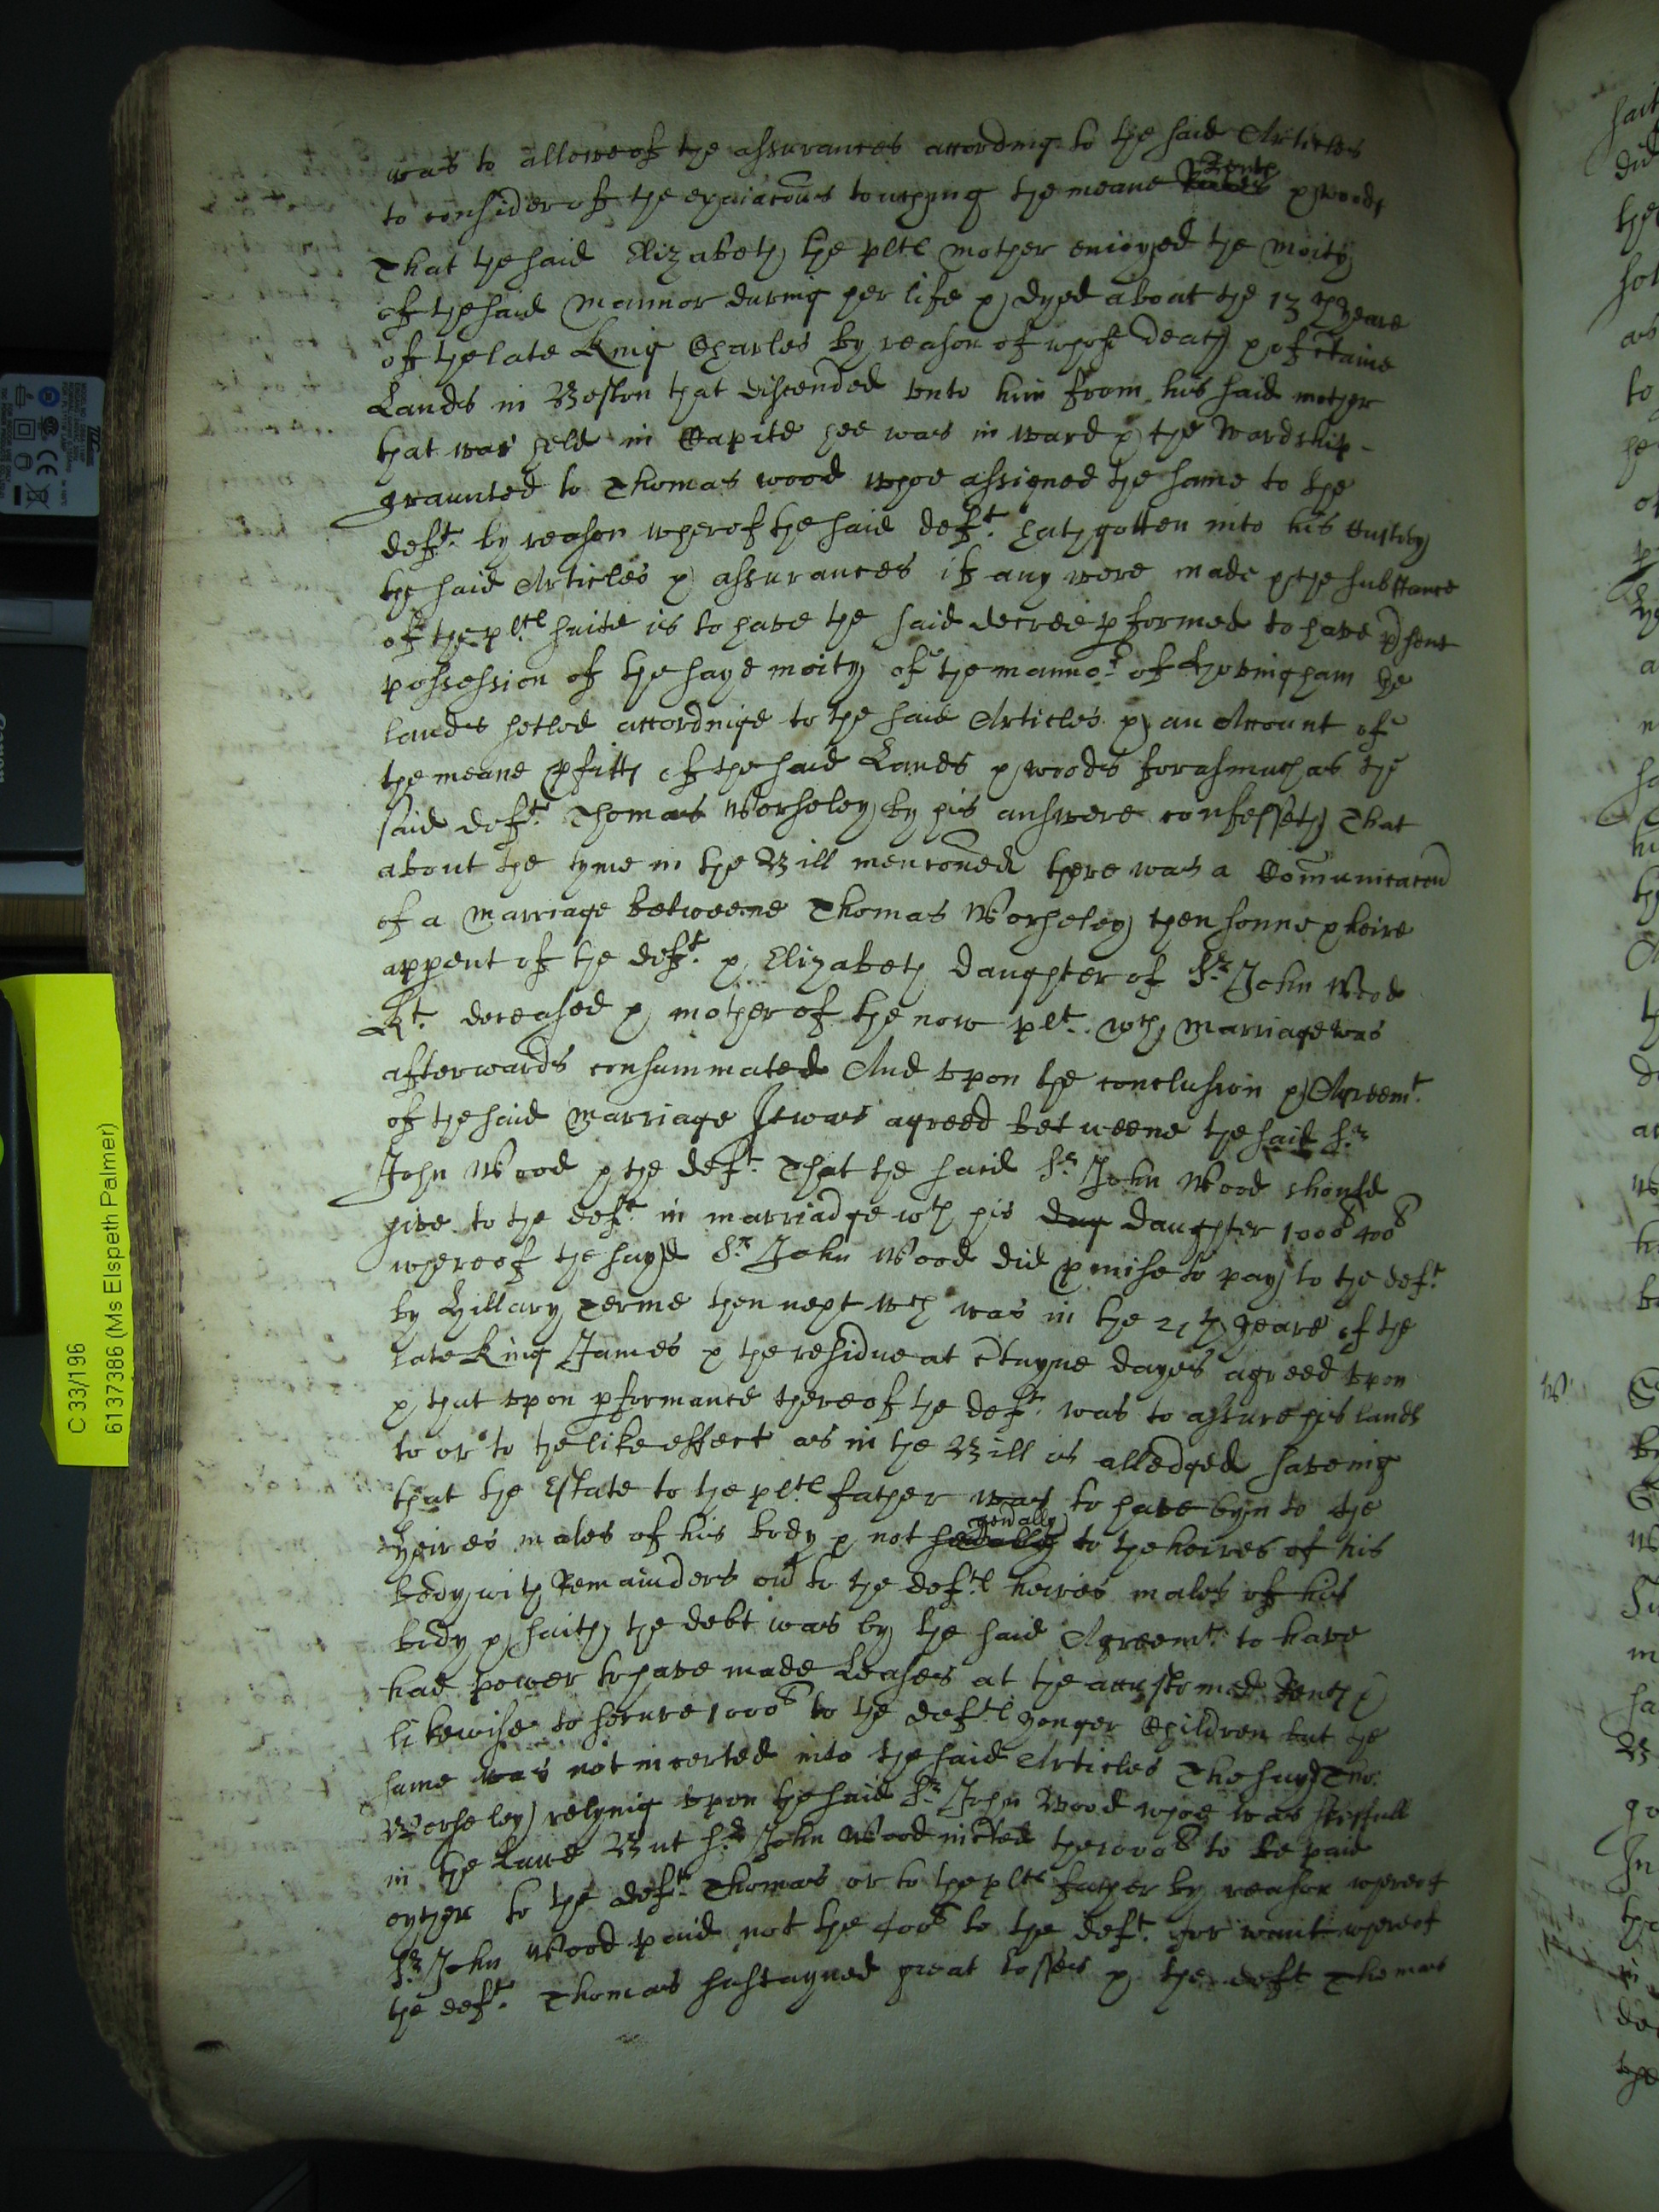 was to allowe of the assurances according to the said Articles
to consider of the exaiacons touching the meane Rents & woods
That the said Elizabeth the plts mother enioyed the moity
of the said Mannor during her life & dyed about the 13th yeare
of the late King Charles by reason of whose death & of ctaine
Lands in Beston that discended unto him from his said mother
that was held in Capite hee was in ward & the Wardship
graunted to Thomas wood whoe assigned the same to the
deft. by reason wherof the said deft. hath gotten into his custody
the said Articles & assurances if any were made & the substance
of the plts suite is to have the said decree pformed to have psent
possession of the sayd moity of the mannor of Hovingham the
lands setled accordinge to the said Articles & an Account of
the meane pfitts of the said Lands & woods forasmuch as the
said deft. Thomas Worseley by his answere confesseth That
about the tyme in the Bill menconed there was a Comunicacon
of a Marriage betweene Thomas Worseley then sonne & heire
appent of the deft. & Elizabeth daughter of Sr. John Wood
Kt. deceased & mother of the now plt. wch Marriage was
afterwards consummated And upon the conclusion & Agreemt.
of the said Marriage It was agreed betweene the said Sr
John Wood & the deft. That the said Sr John Wood should
give to the deft. in marriadge wth his dag daughter 1000l 400l
whereof the sayd Sr John Wood did pmise to pay to the deft.
by Hillary Terme then next wch was in the 21th yeare of the
late King James & the residue at ctayne dayes agreed upon
& that upon pformance thereof the deft. was to assure his lands
to or to the like effect as in the Bill is alledged saveing
that the Estate to the plts father was to have byn to the
heires males of his body & not genally to the heires of his
body with Remainders ov to the defts heires males of his
body & saith the debt was by the said Agreemt. to have
had power to have made Leases at the accustomed Rents &
likewise to secure 1000l to the defts yonger Children but the
same was not incerted into the said Articles The sayd Tho:
Worseley relying upon the said Sr John Wood whoe was skilfull
in the Lawe But Sr John Wood the 1000l to be paid
eyther to the deft. Thomas or to the plts father by reason whereof
Sr John Wood paid not the 400l to the deft. for want whereof
the deft. Thomas sustayned great losses & the deft Thomas
C 33/196
6137386 (Ms Elspeth Palmer)
Canon